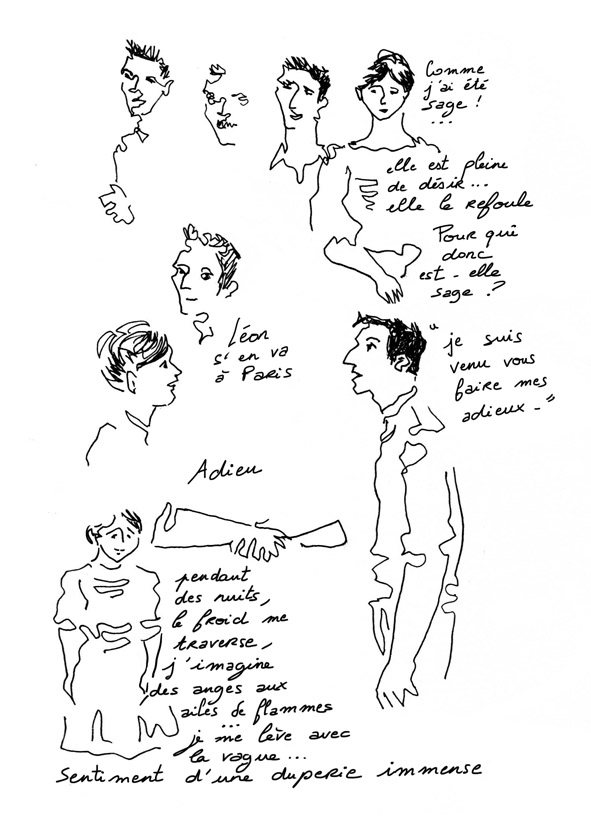 Comme
j'ai été
sage !
...
elle est pleine
de désir...
elle le refoule
Pour qui
donc
est-elle
sage ?
Léon
s'en va
à Paris
"je suis
venu vous
faire mes
adieux -"
Adieu
pendant
des nuits,
le froid me
traverse,
j'imagine
des anges aux
ailes de flammes
...
je me lève avec
la vague...
Sentiment d'une duperie immense